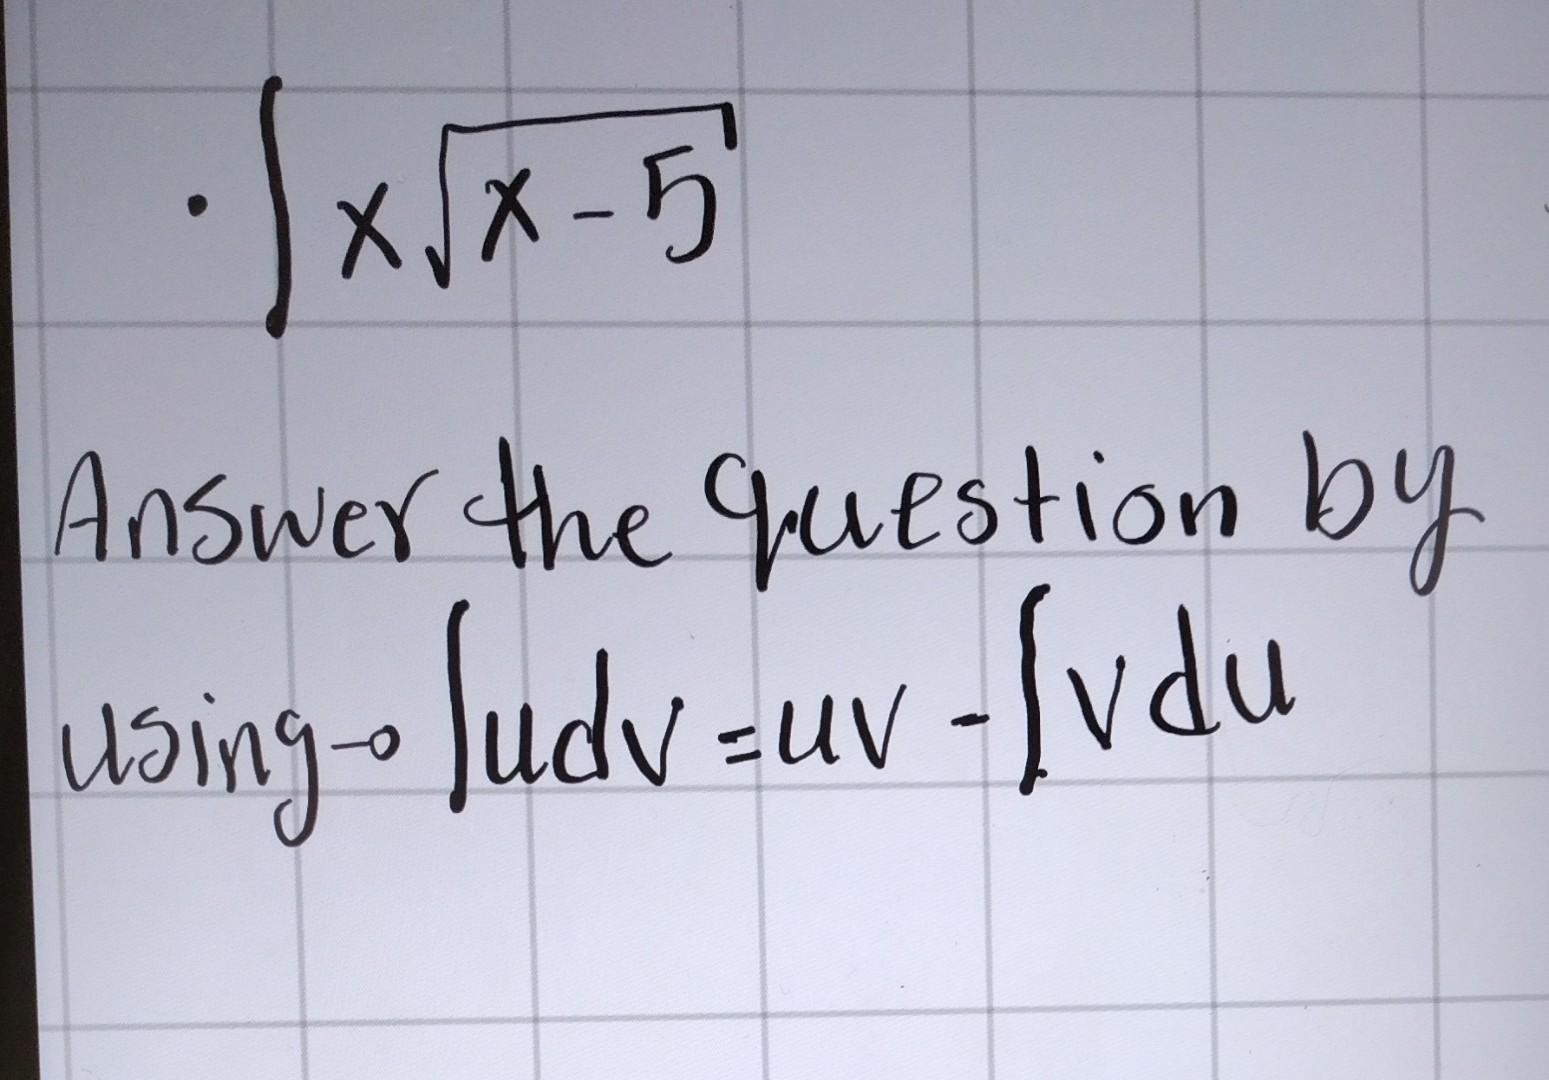 • ∫ x√(x - 5)
Answer the question by
using→ ∫udv = uv - ∫vdu